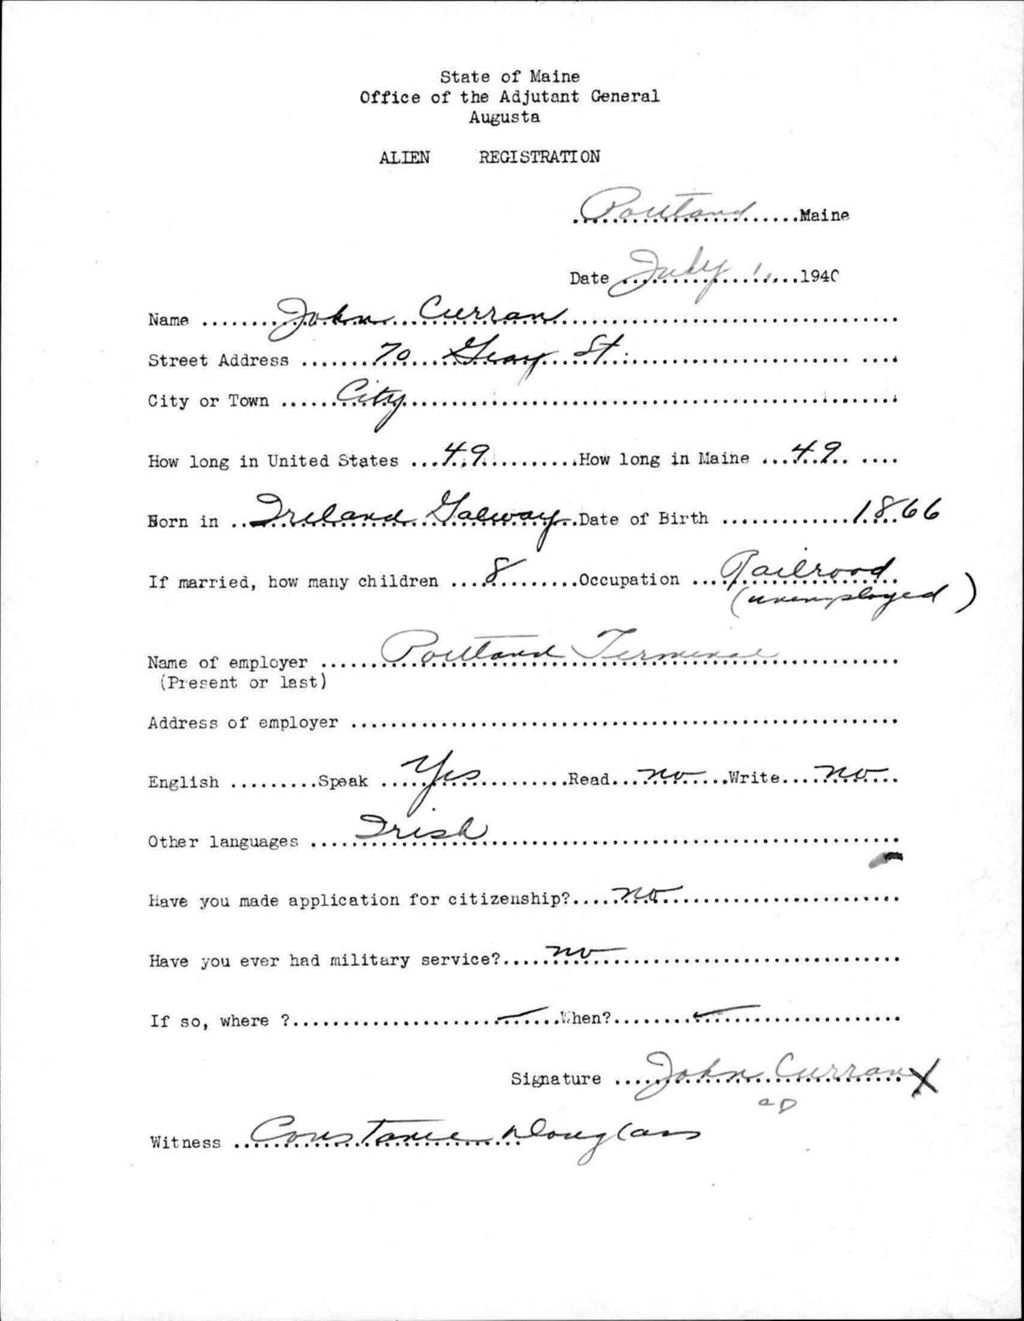 State of Maine
Office of the Adjutant General
Augusta
ALIEN REGISTRATION
Portland Maine
Date July 1, 1940
Name John Curran
Street Address 70 Gray St.
City or Town City
How long in United States 49 How long in Maine 49
Born in Ireland Galway Date of Birth 1866
If married, how many children 8 Occupation Railroad
(unemployed)
Name of employer Portland Terminal
(Present or last)
Address of employer
English Speak Yes Read no Write no
Other languages Irish
Have you made application for citizenship? no
Have you ever had military service? no
If so, where ? When?
Signature John Curran X
Witness Constance Douglass